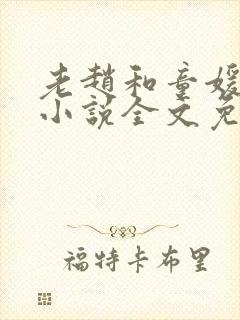 老趙和童媛
小說全文免
福特卡布里